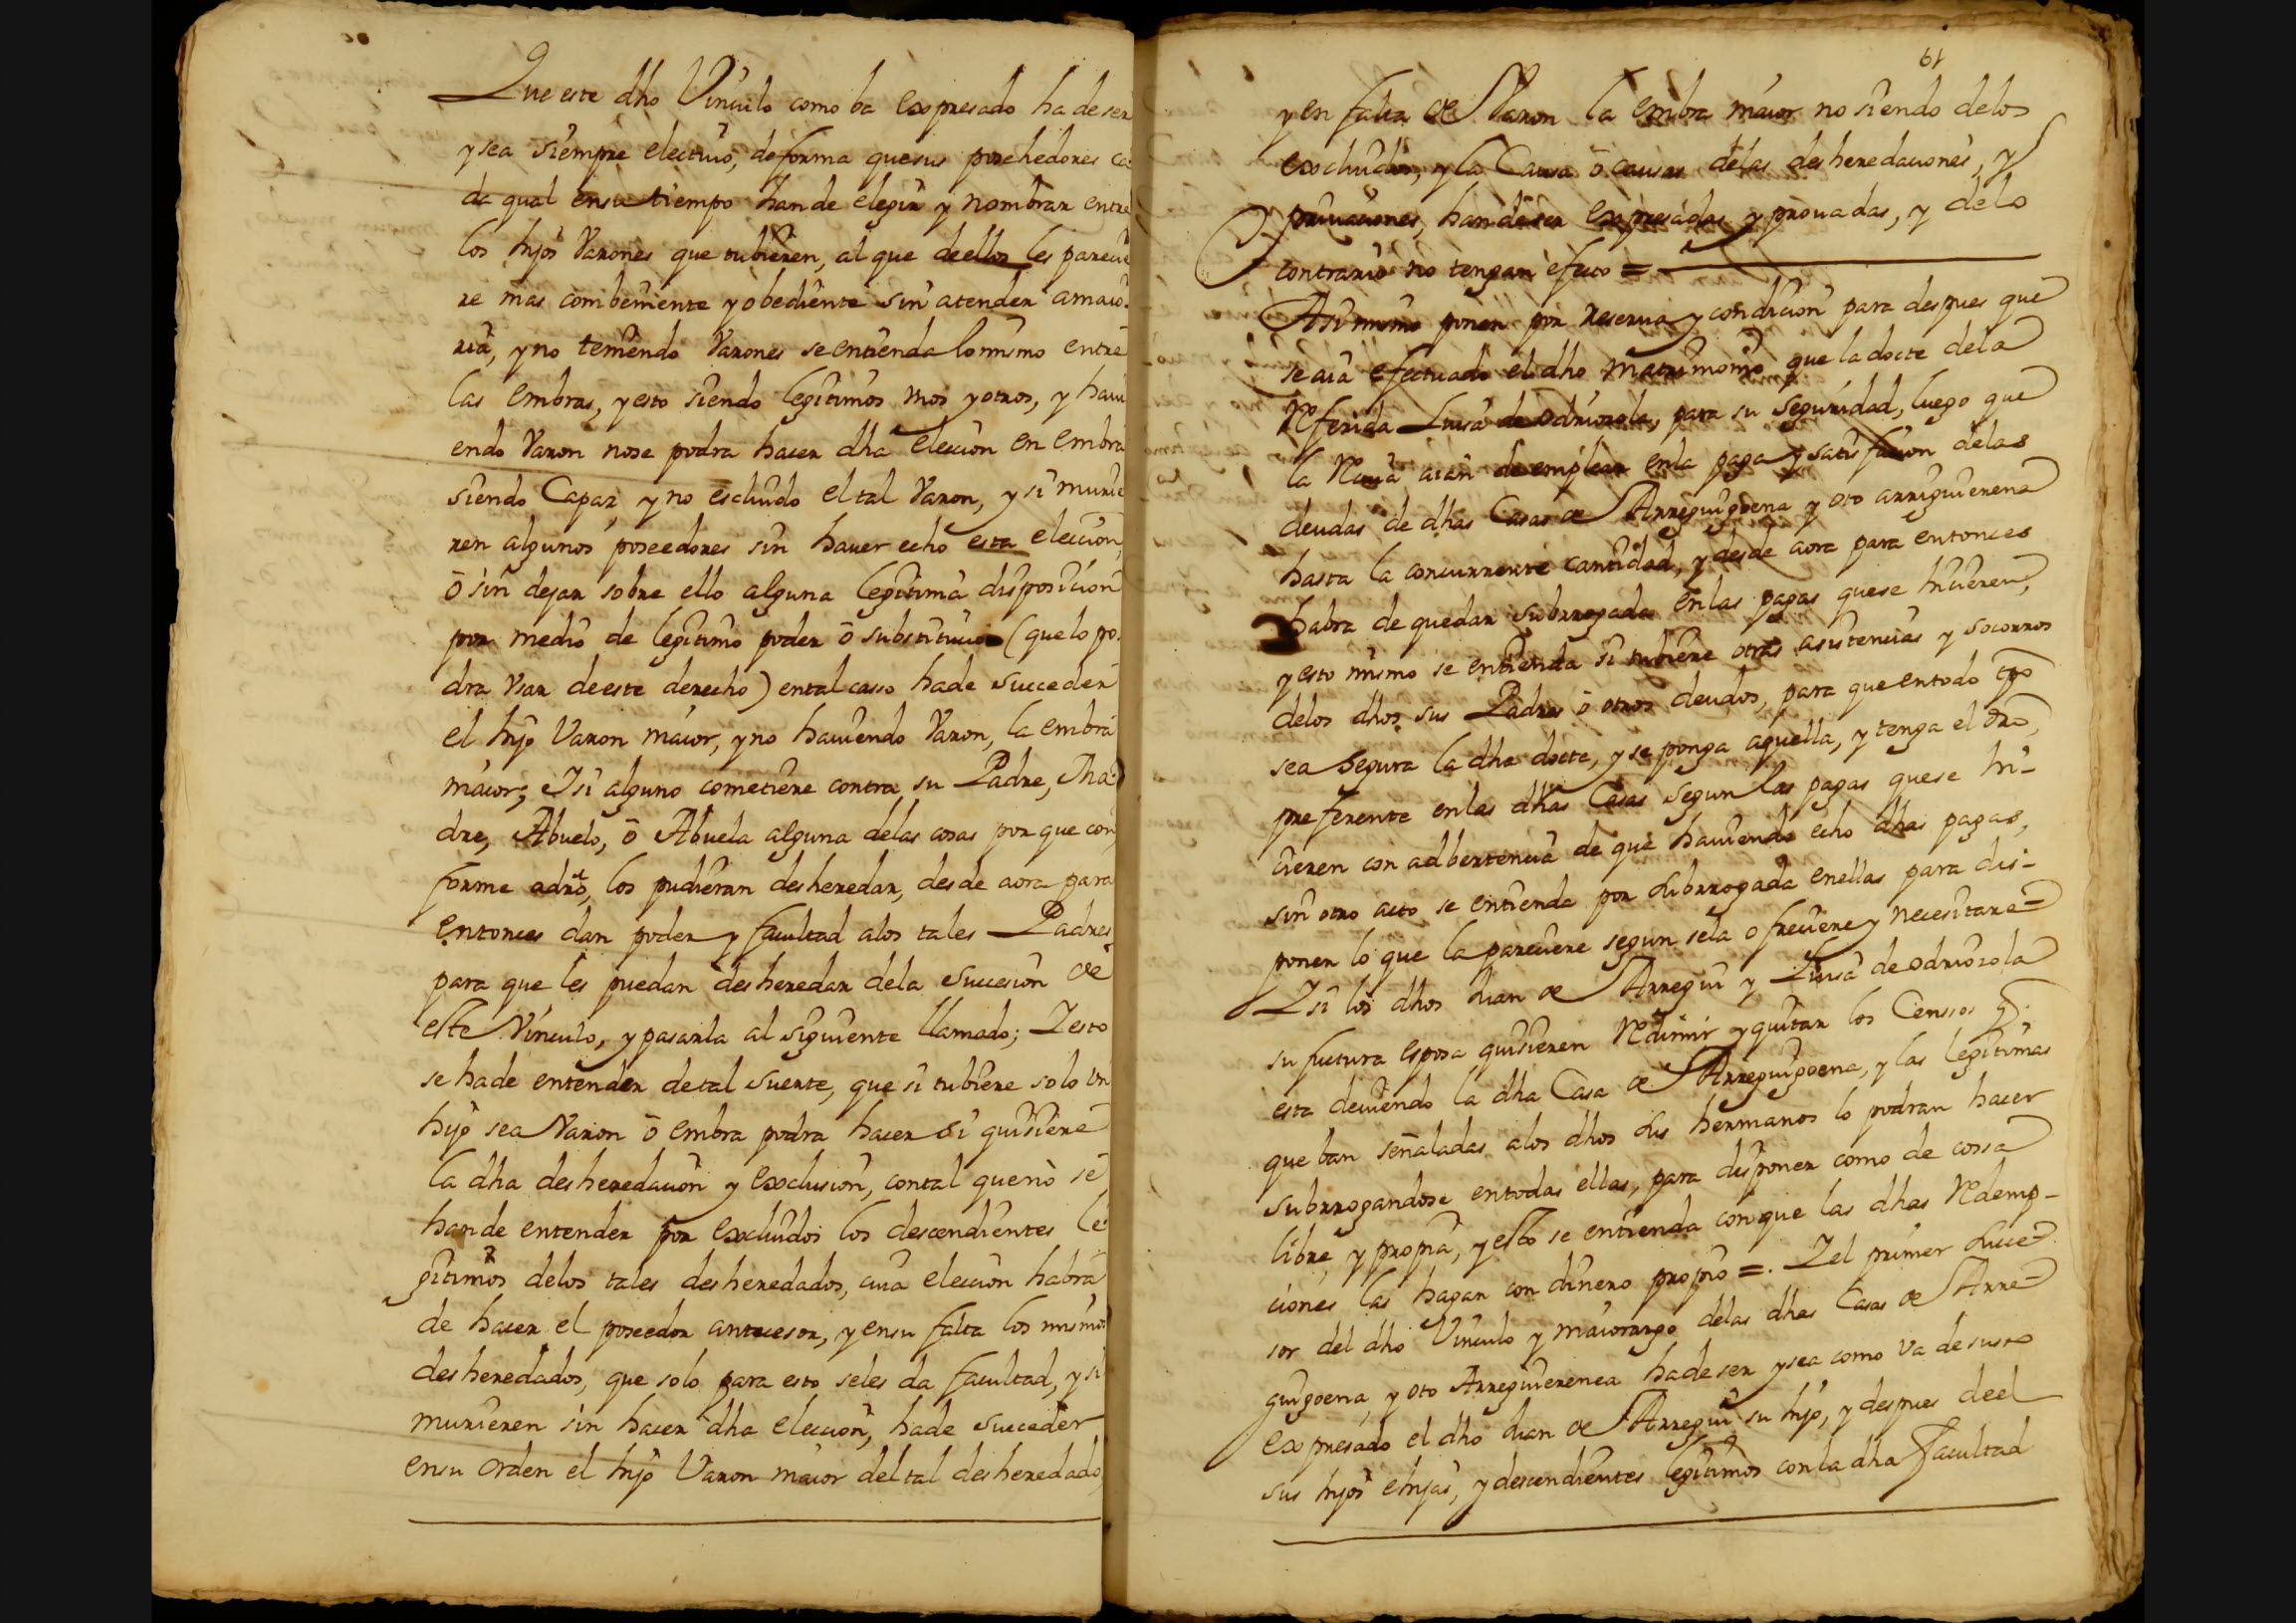 Que este dho Vinculo como ba expresado ha de ser
y sea siempre electiuo, de forma que sus poxehedores ca
da qual en su tiempo han de elegir y nombrar entre
los hijos Varones que tubieren, al que de ellos les parecie
re mas combeniente y obediente sin atender a maio-
ria, y no teniendo Varones se entienda lo mismo entre
las embras, y esto siendo legitimos vnos y otros, y haui
endo Varon no se podra hacer dha eleccion en embra
siendo Capaz y no escluido el tal Varon, y si murie
ren algunos poseedores sin hauer echo esta eleccion,
ó sin dejar sobre ello alguna legitima disposicion
por medio de legitimo poder ó substitucion (que lo po-
dra vsar de este derecho) en tal casso ha de succeder
el hijo Varon maior, y no hauiendo Varon, la embra
maior; Y si alguno cometiere contra su Padre, Ma-
dre, Abuelo, ó Abuela alguna de las cosas por que con
forme a dro, los pudieran desheredar, desde aora para
entonces dan poder y facultad a los tales Padres
para que les puedan desheredar de la Succesion de
este Vinculo, y pasarla al siguiente llamado; Y esto
se ha de entender de tal suerte, que si tubiere solo vn
hijo sea Varon ó embra podra hacer si quisiere
la dha desheredacion y exclusion, con tal que no se
han de entender por excluidos los descendientes le-
gitimos de los tales desheredados, cuia eleccion habra
de hacer el poseedor antecesor, y en su falta los mismos
desheredados, que solo para esto se les da facultad, y si
murieren sin hacer dha eleccion, ha de succeder
en su orden el hijo Varon maior del tal desheredado,
61
y en falta de Varon la embra maior no siendo de los
excluidos, y la Causa ó causas de las desheredaciones, y
priuaciones, han de ser expresadas y prouadas, y de lo
contrario no tengan efecto =
Asi mismo ponen por reserua y condicion para despues que
se aia efectuado el dho matrimonio que la docte de la
Referida Luisa de Odriozola, para su Seguridad, luego que
la Reciua aian de emplear en la paga y satisfacion de las
deudas de dhas Casas de Arreguigoena y oto arriguierena
hasta la concurrente cantidad, y desde aora para entonces
habra de quedar Subrrogada en las pagas que se hicieren,
y esto mismo se entienda si tubiere otras asistencias y socorros
de los dhos sus Padres ó otros deudos, para que en todo tpo
sea Segura la dha docte, y se ponga aquella, y tenga el dro
preferente en las dhas Casas segun las pagas que se hi-
cieren con adbertencia de que hauiendo echo dhas pagas,
sin otro acto se entienda por Subrrogada en ellas para dis-
poner lo que la pareciere segun se la ofreciere y necesitare=
Y si los dhos Juan de Arregui y Luisa de Odriozola
su fuctura esposa quisieren Redimir y quitar los Censsos q
esta deuiendo la dha Casa de Arreguigoena, y las legitimas
que ban señaladas a los dhos sus hermanos lo podran hacer
subrrogandose en todas ellas, para disponer como de cossa
libre y propia, y esto se entienda con que las dhas Redemp-
ciones las hagan con dinero propio =. Y el primer Succe=
sor del dho Vinculo y maiorazgo de las dhas Casas de Arre=
guigoena, y oto Arreguierenea ha de ser y sea como va de suso
expresado el dho Juan de Arregui su hijo, y despues de el
sus hijos e hijas, y descendientes legitimos con la dha facultad